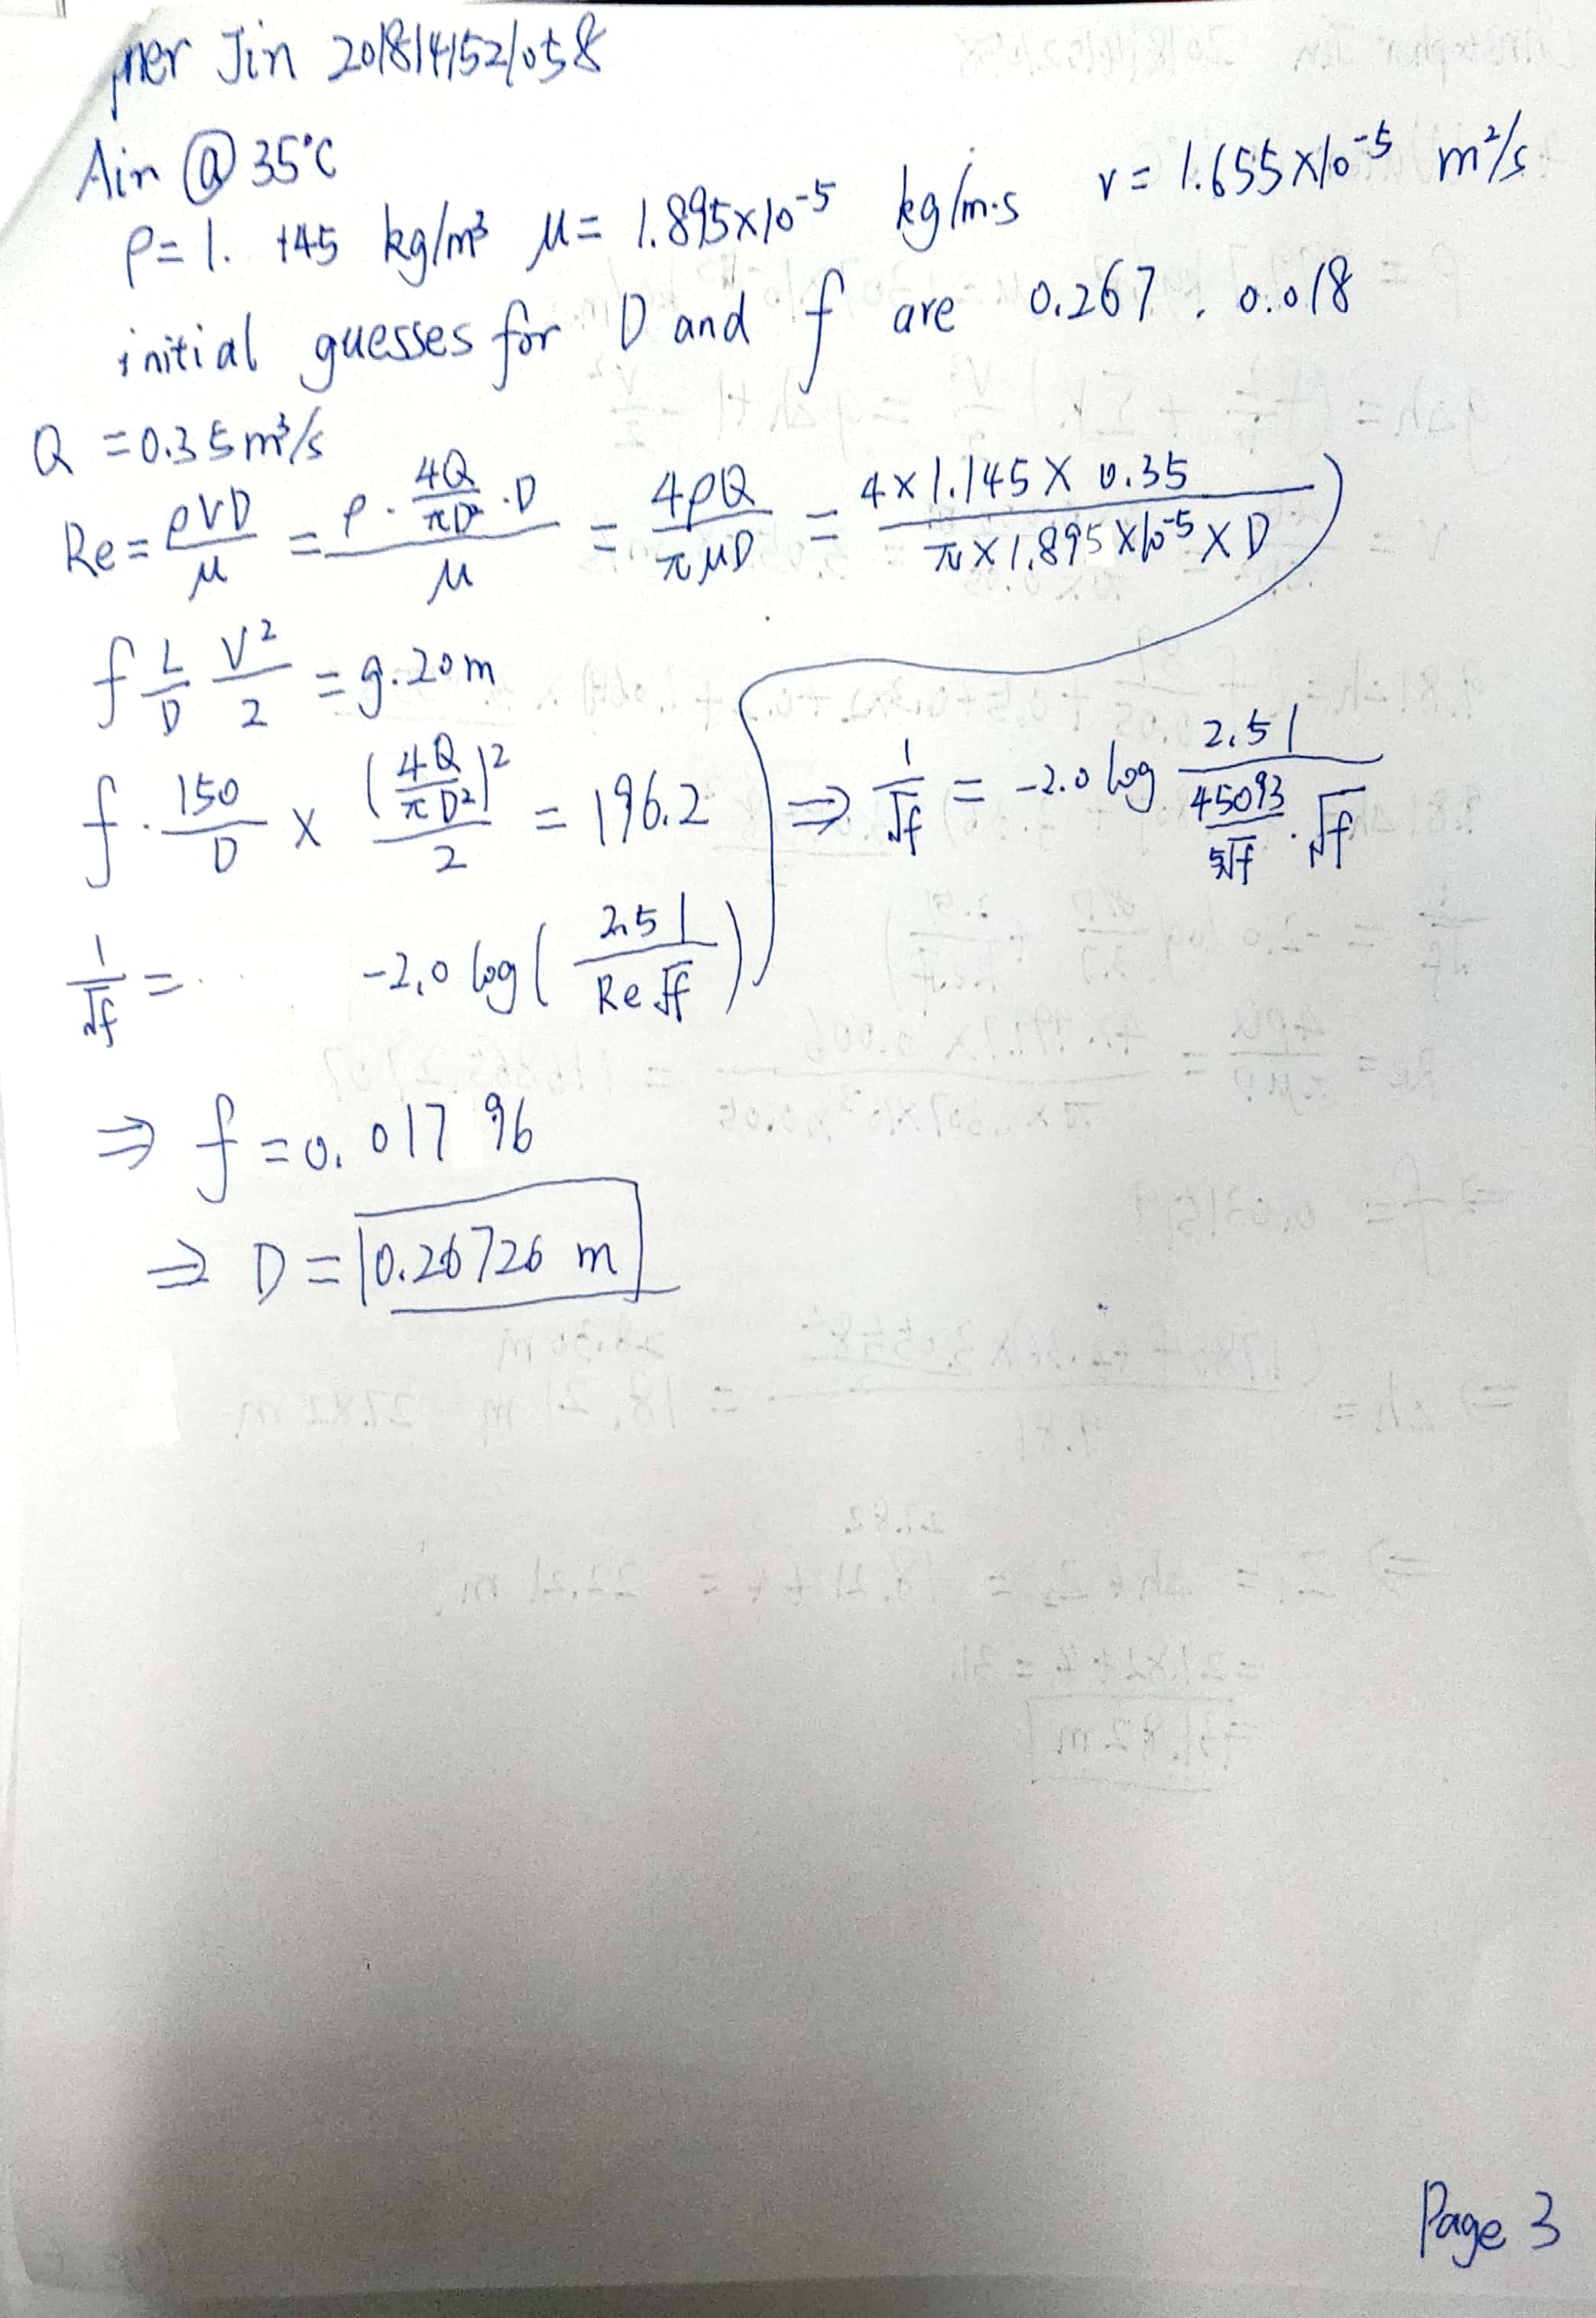 Jin 2018141521058
Air @ 35°C
ρ = 1.145 kg/m³ μ = 1.895×10⁻⁵ kg/m·s ν = 1.655×10⁻⁵ m²/s
initial guesses for D and f are 0.267, 0.018
Q = 0.35 m³/s
Re = ρVD/μ = (ρ · 4Q/(πD²) · D)/μ = 4ρQ/(πμD) = (4×1.145×0.35)/(π×1.895×10⁻⁵×D)
f L/D V²/2 = g·20m
f · 150/D × (4Q/(πD²))²/2 = 196.2 ⇒ 1/√f = -2.0 log 2.51/((45093/⁵√f) · √f)
1/√f = -2.0 log(2.51/(Re√f))
⇒ f = 0.01796
⇒ D = 0.26726 m
Page 3